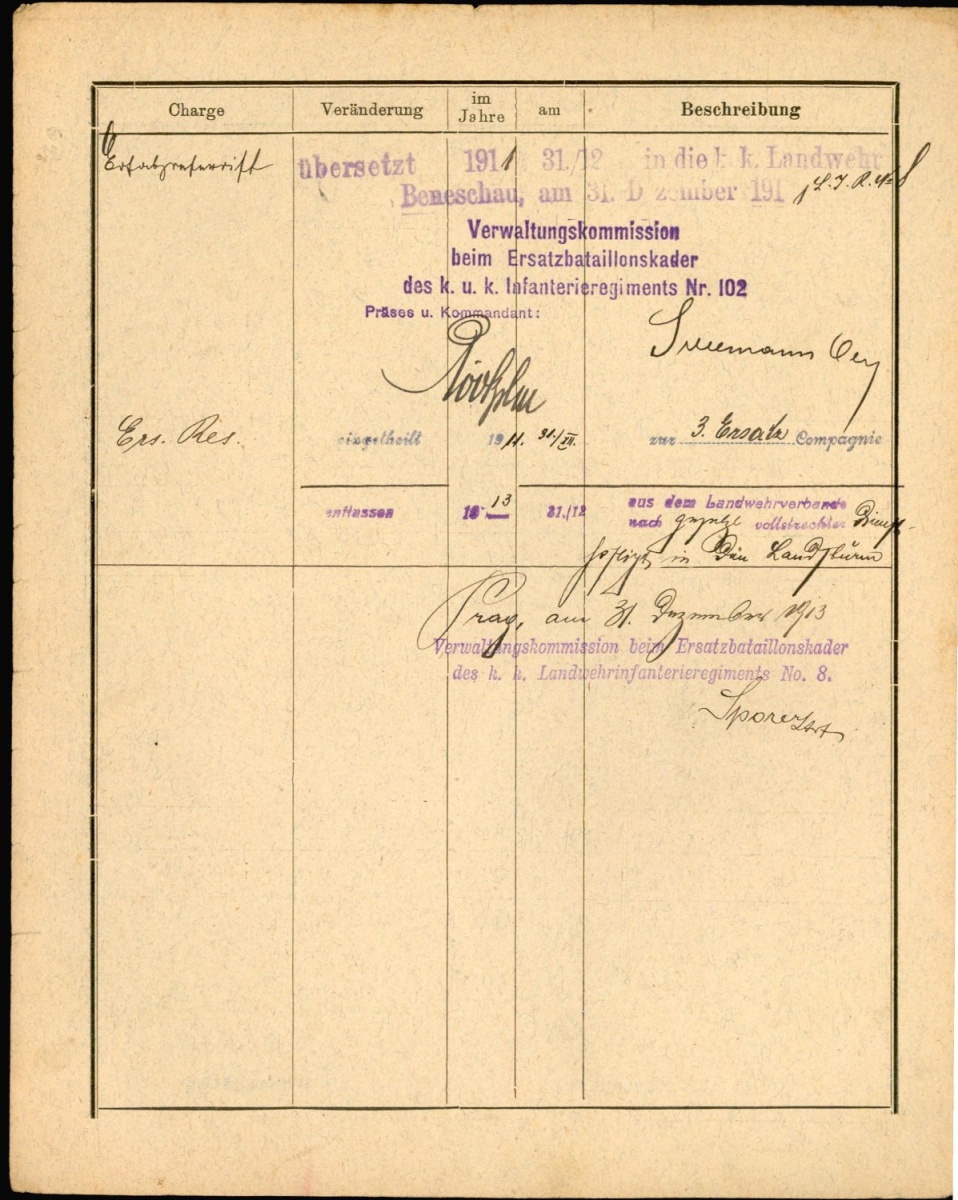 Charge Veränderung im Jahre am Beschreibung
Ersatzreservist übersetzt 1911 31./12 in die k. k. Landwehr
Beneschau, am 31. Dezember 1911 L. I. R. No 8
Verwaltungskommission
beim Ersatzbataillonskader
des k. u. k. Infanterieregiments Nr. 102
Präses u. Kommandant:
Ers. Res. eingetheilt 1911. 31./XII. zur 3. Ersatz Compagnie
entlassen 1913 31./12 aus dem Landwehrverbande
nach vollstreckter Dienst-
pflicht in den Landsturm
Prag, am 31. Dezember 1913
Verwaltungskommission beim Ersatzbataillonskader
des k. k. Landwehrinfanterieregiments No. 8.